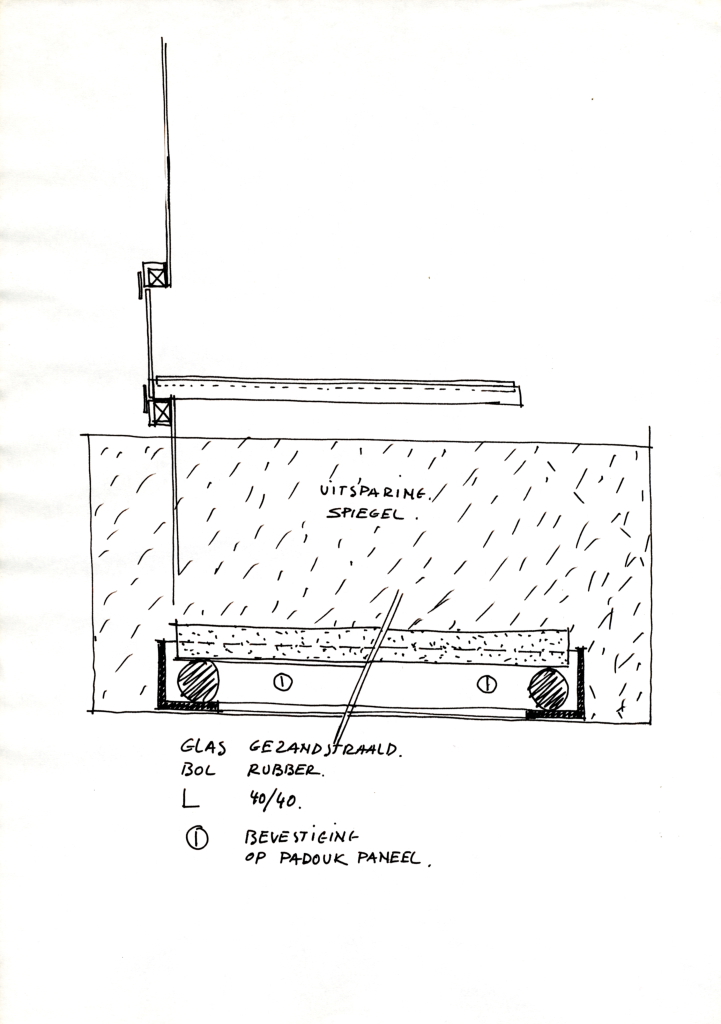 UITSPARING.
SPIEGEL.
GLAS GEZANDSTRAALD.
BOL RUBBER.
L 40/40.
BEVESTIGING
OP PADOUK PANEEL.